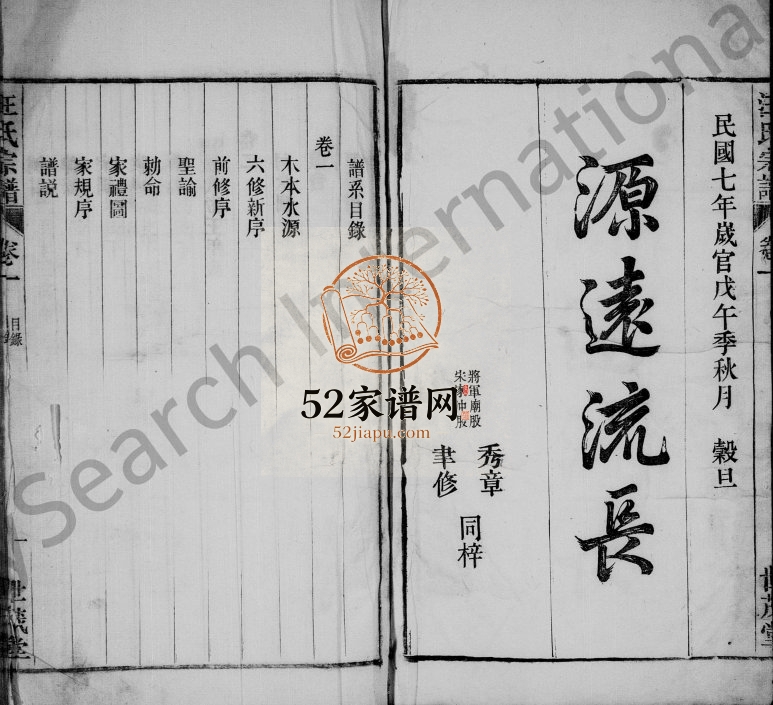 汪氏宗譜
卷一
世茂堂
民國七年歲官戊午季秋月 穀旦
源遠流長
將軍廟股 秀章
宋家冲股 聿修
同梓
譜系目錄
卷一
木本水源
六修新序
前修序
聖諭
勅命
家禮圖
家規序
譜説
汪氏宗譜
卷一
目錄
一
世茂堂
52家谱网
52jiapu.com
Search International